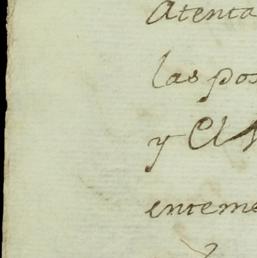 Atenta
las pos
y El
enteme